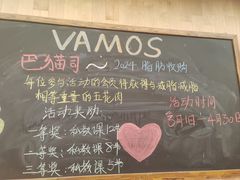 VAMOS
巴犸司 ~ 2024 脂肪收购
每位参与活动的会员将获得与减脂
相等重量的五花肉
活动奖励:
一等奖: 私教课12节
二等奖: 私教课8节
三等奖: 私教课5节
活动时间
3月1日—4月30日